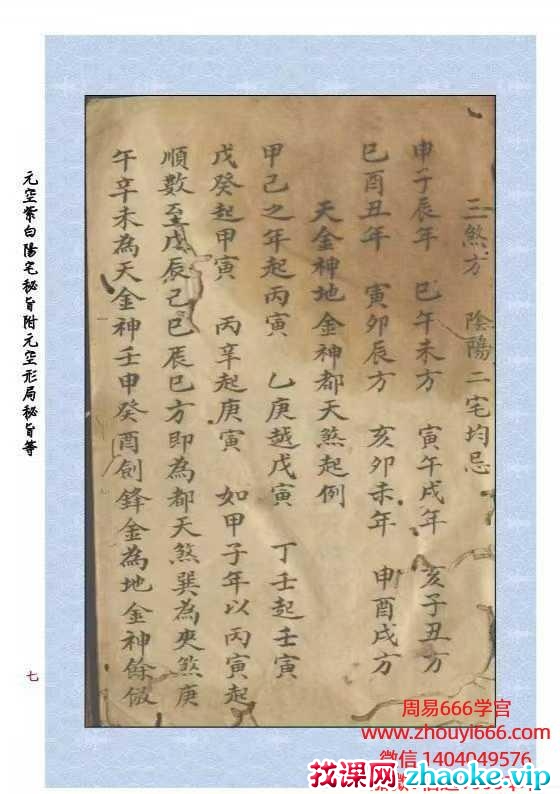 三煞方 陰陽二宅均忌
申子辰年 巳午未方 寅午戌年 亥子丑方
巳酉丑年 寅卯辰方 亥卯未年 申酉戌方
天金神地金神都天煞起例
甲己之年起丙寅 乙庚越戊寅 丁壬起壬寅
戊癸起甲寅 丙辛起庚寅 如甲子年以丙寅起
順數至戊辰己巳辰巳方即為都天煞巽為夾煞庚
午辛未為天金神壬申癸酉劍鋒金為地金神餘倣
元空紫白陽宅秘旨附元空形局秘旨等
七
周易666学宫
www.zhouyi666.com
微信 1404049576
找课网zhaoke.vip